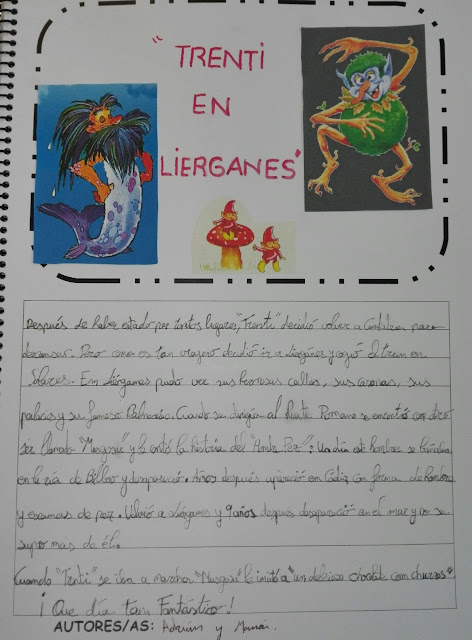 "TRENTI
EN
LIERGANES"
Después de haber estado por tantos lugares, "Trenti" decidió volver a Cantabria, para
descansar. Pero como es tan viajero decidió ir a Liérganes y cogió el tren en
Solares. En Liérganes pudo ver sus hermosas calles, sus casonas, sus
palacios y su famoso Balneario. Cuando se dirigía al Puente Romano se encontró con otro
ser llamado "Musgosu" y le contó la historia del "Hombre Pez": Un día este hombre se bañaba
en la ría de Bilbao y desapareció. Años después apareció en Cádiz con forma de hombre
y escamas de pez. Volvió a Liérganes y 9 años después desapareció en el mar y no se
supo mas de él.
Cuando "Trenti" se iba a marchar "Musgosu" le invitó a "un delicioso chocolate con churros"
¡Que día tan Fantástico!
AUTORES/AS: Adrián y